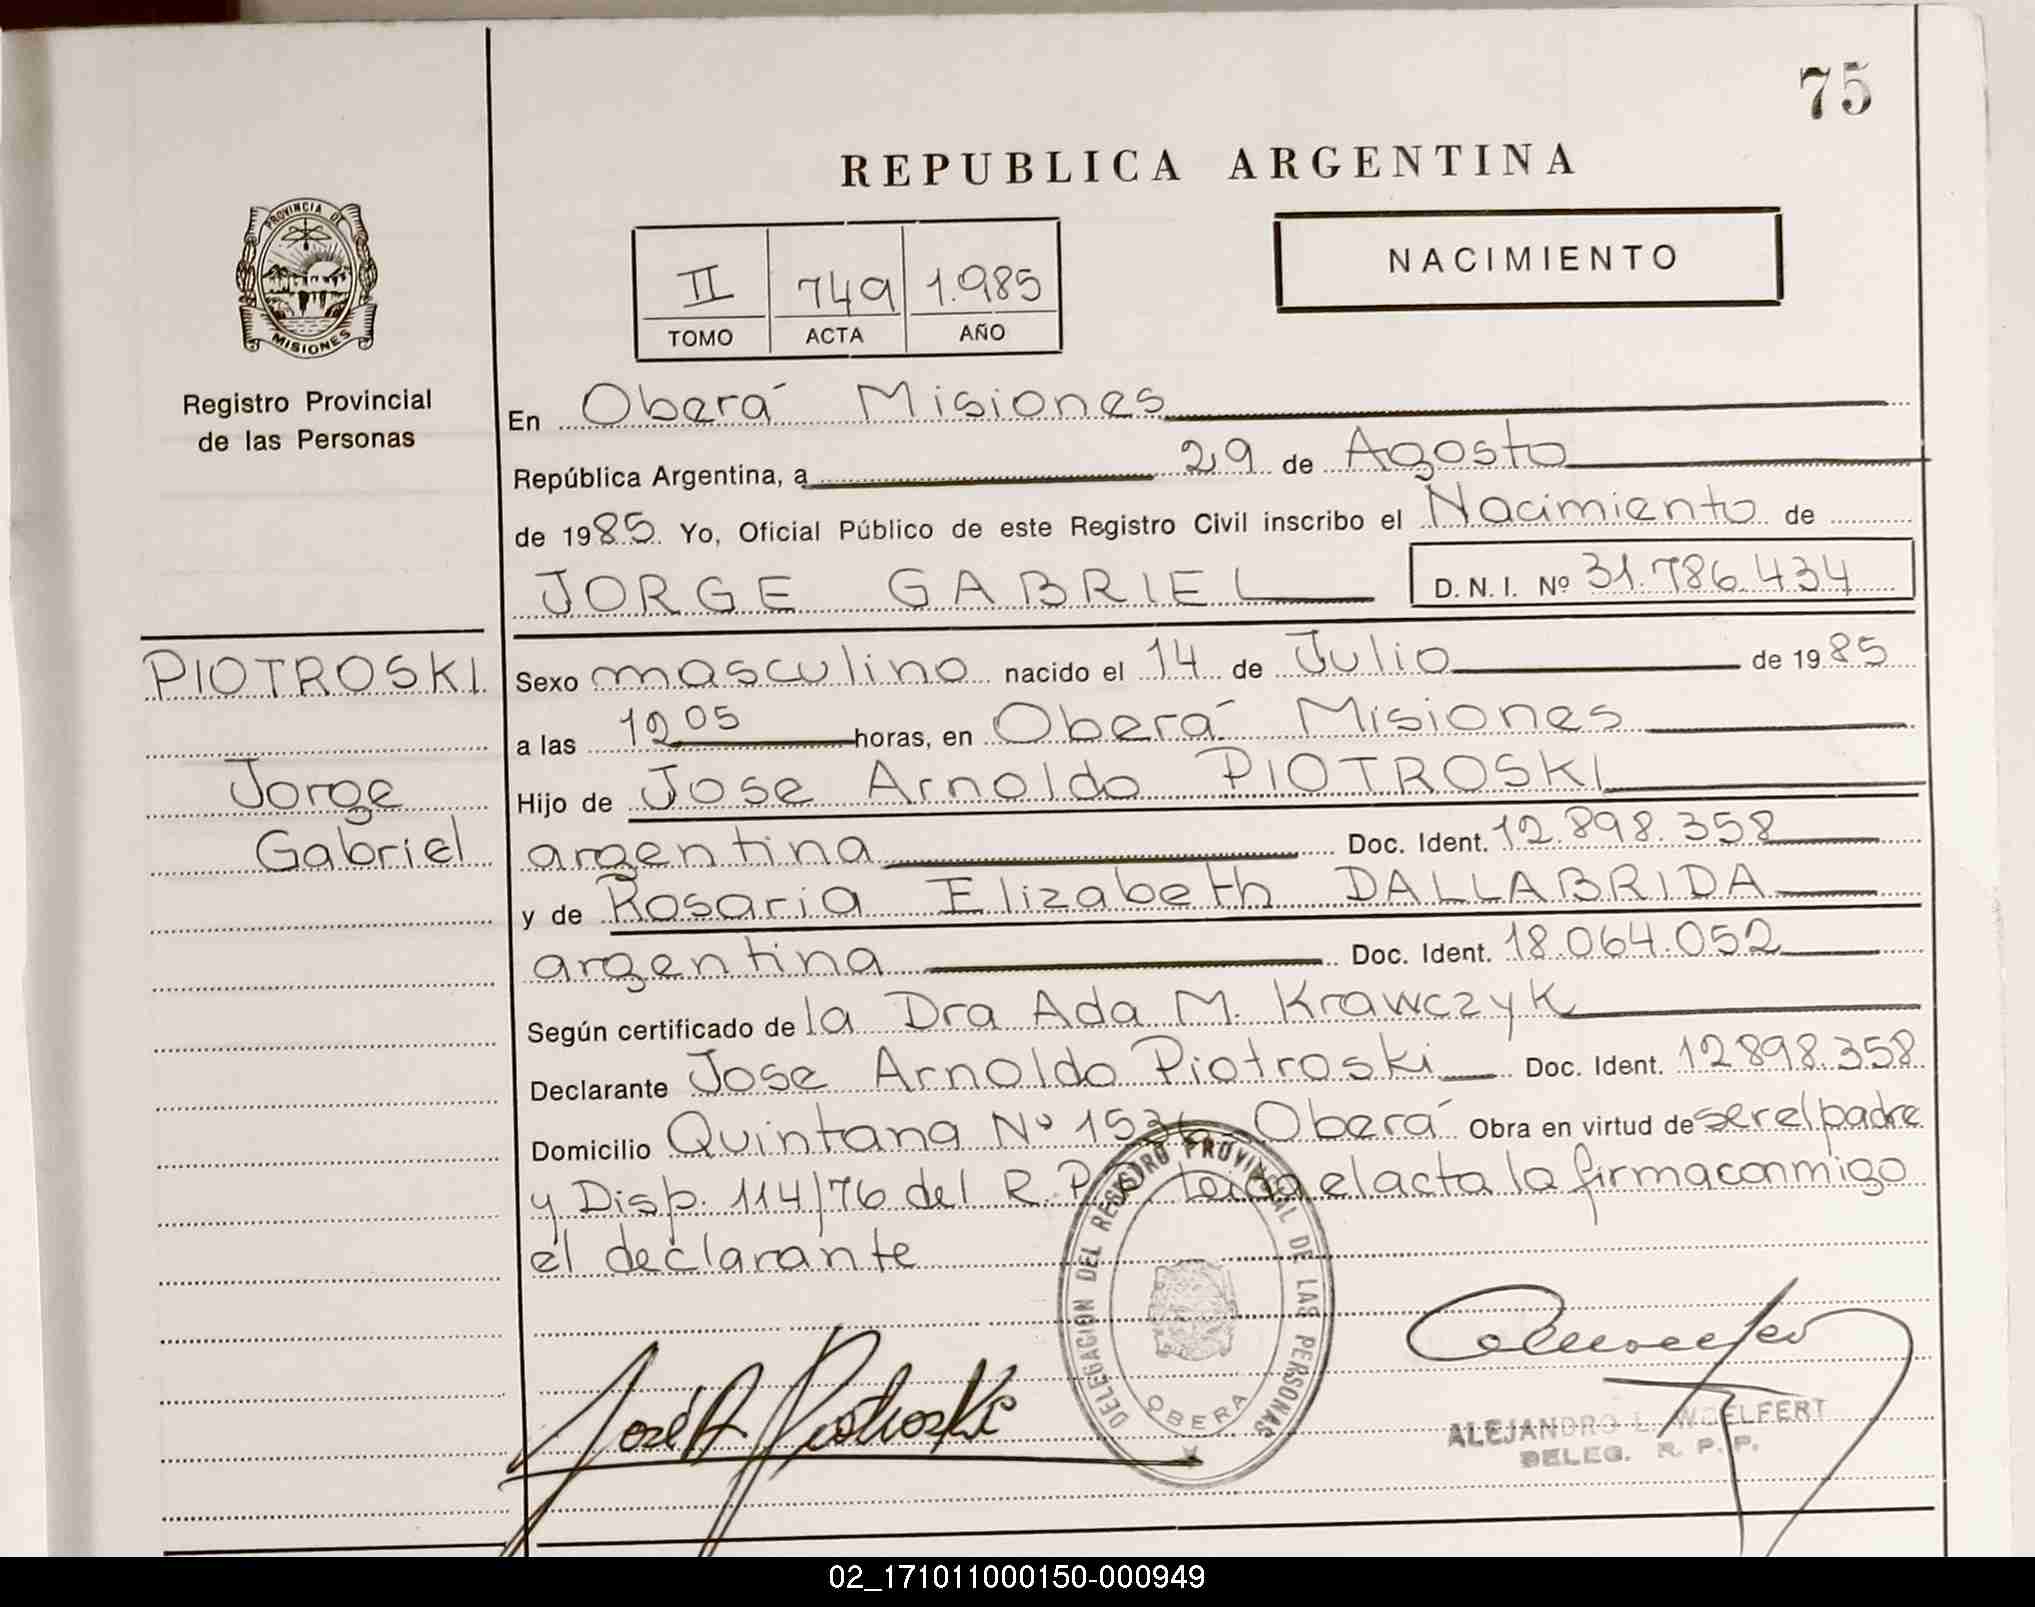 75
REPUBLICA ARGENTINA
PROVINCIA DE
MISIONES
Registro Provincial
de las Personas
II 749 1.985
TOMO ACTA AÑO
NACIMIENTO
En Oberá Misiones
República Argentina, a 29 de Agosto
de 1985. Yo, Oficial Público de este Registro Civil inscribo el Nacimiento de
JORGE GABRIEL D. N. I. Nº 31.786.434
PIOTROSKI
Jorge
Gabriel
Sexo masculino nacido el 14 de Julio de 1985
a las 12 05 horas, en Oberá Misiones
Hijo de Jose Arnoldo PIOTROSKI
argentina Doc. Ident. 12.898.358
y de Rosaria Elizabeth DALLABRIDA
argentina Doc. Ident. 18.064.052
Según certificado de la Dra Ada M. Krawczyk
Declarante Jose Arnoldo Piotroski Doc. Ident. 12898.358
Domicilio Quintana Nº Oberá Obra en virtud de ser el padre
y Disp. 114/76 del R. P. P. leida el acta la firma conmigo
el declarante
DELEGACION DEL REGISTRO PROVINCIAL DE LAS PERSONAS
OBERA
José A Piotroski
ALEJANDRO L. WOELFERT
DELEG. R. P. P.
02_171011000150-000949